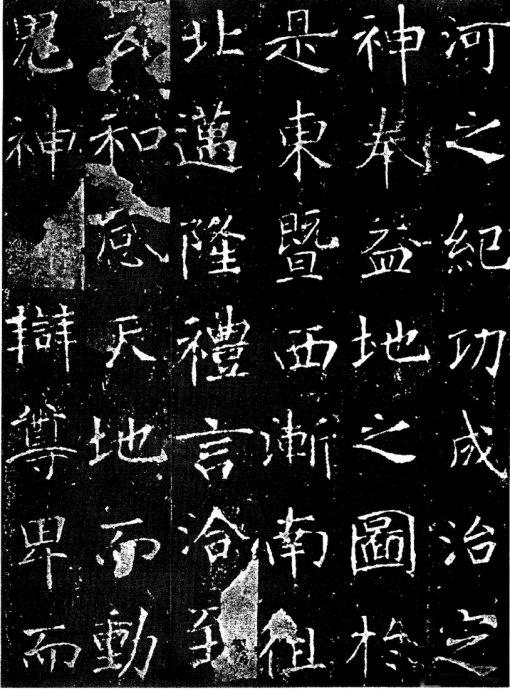 河之紀功成治之
神奉益地之圖於
是東暨西漸南徂
北邁隆禮言洽
和感天地而動
鬼神辯尊卑而